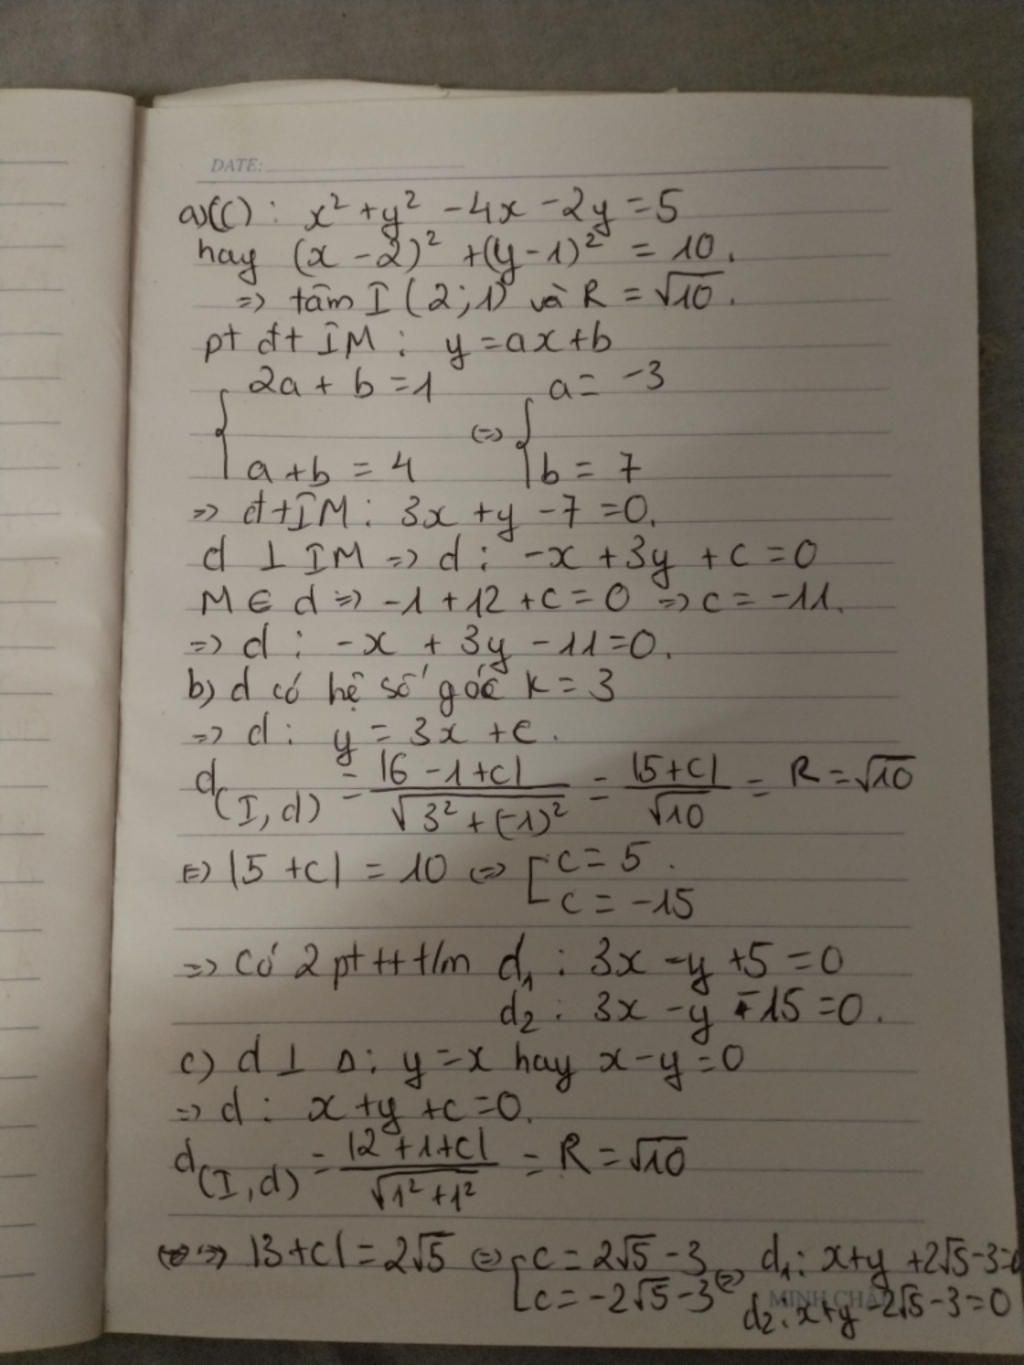 DATE:
a)(C): x² + y² - 4x - 2y = 5
hay (x - 2)² + (y - 1)² = 10.
=> tâm I (2; 1) và R = √10.
pt đt IM: y = ax + b
{ 2a + b = 1 <=> { a = -3
a + b = 4 b = 7
=> đt IM: 3x + y - 7 = 0.
d ⊥ IM => d: -x + 3y + c = 0
M ∈ d => -1 + 12 + c = 0 => c = -11.
=> d: -x + 3y - 11 = 0.
b) d có hệ số góc k = 3
=> d: y = 3x + c.
d(I, d) = |6 - 1 + c| / √(3² + (-1)²) = |5 + c| / √10 = R = √10
=> |5 + c| = 10 <=> [ c = 5.
c = -15
=> Có 2 pt tt t/m d₁: 3x - y + 5 = 0
d₂: 3x - y - 15 = 0.
c) d ⊥ Δ: y = x hay x - y = 0
=> d: x + y + c = 0.
d(I, d) = |2 + 1 + c| / √(1² + 1²) = R = √10
=> |3 + c| = 2√5 <=> [ c = 2√5 - 3 => d₁: x + y + 2√5 - 3 = 0
c = -2√5 - 3 d₂: x + y - 2√5 - 3 = 0